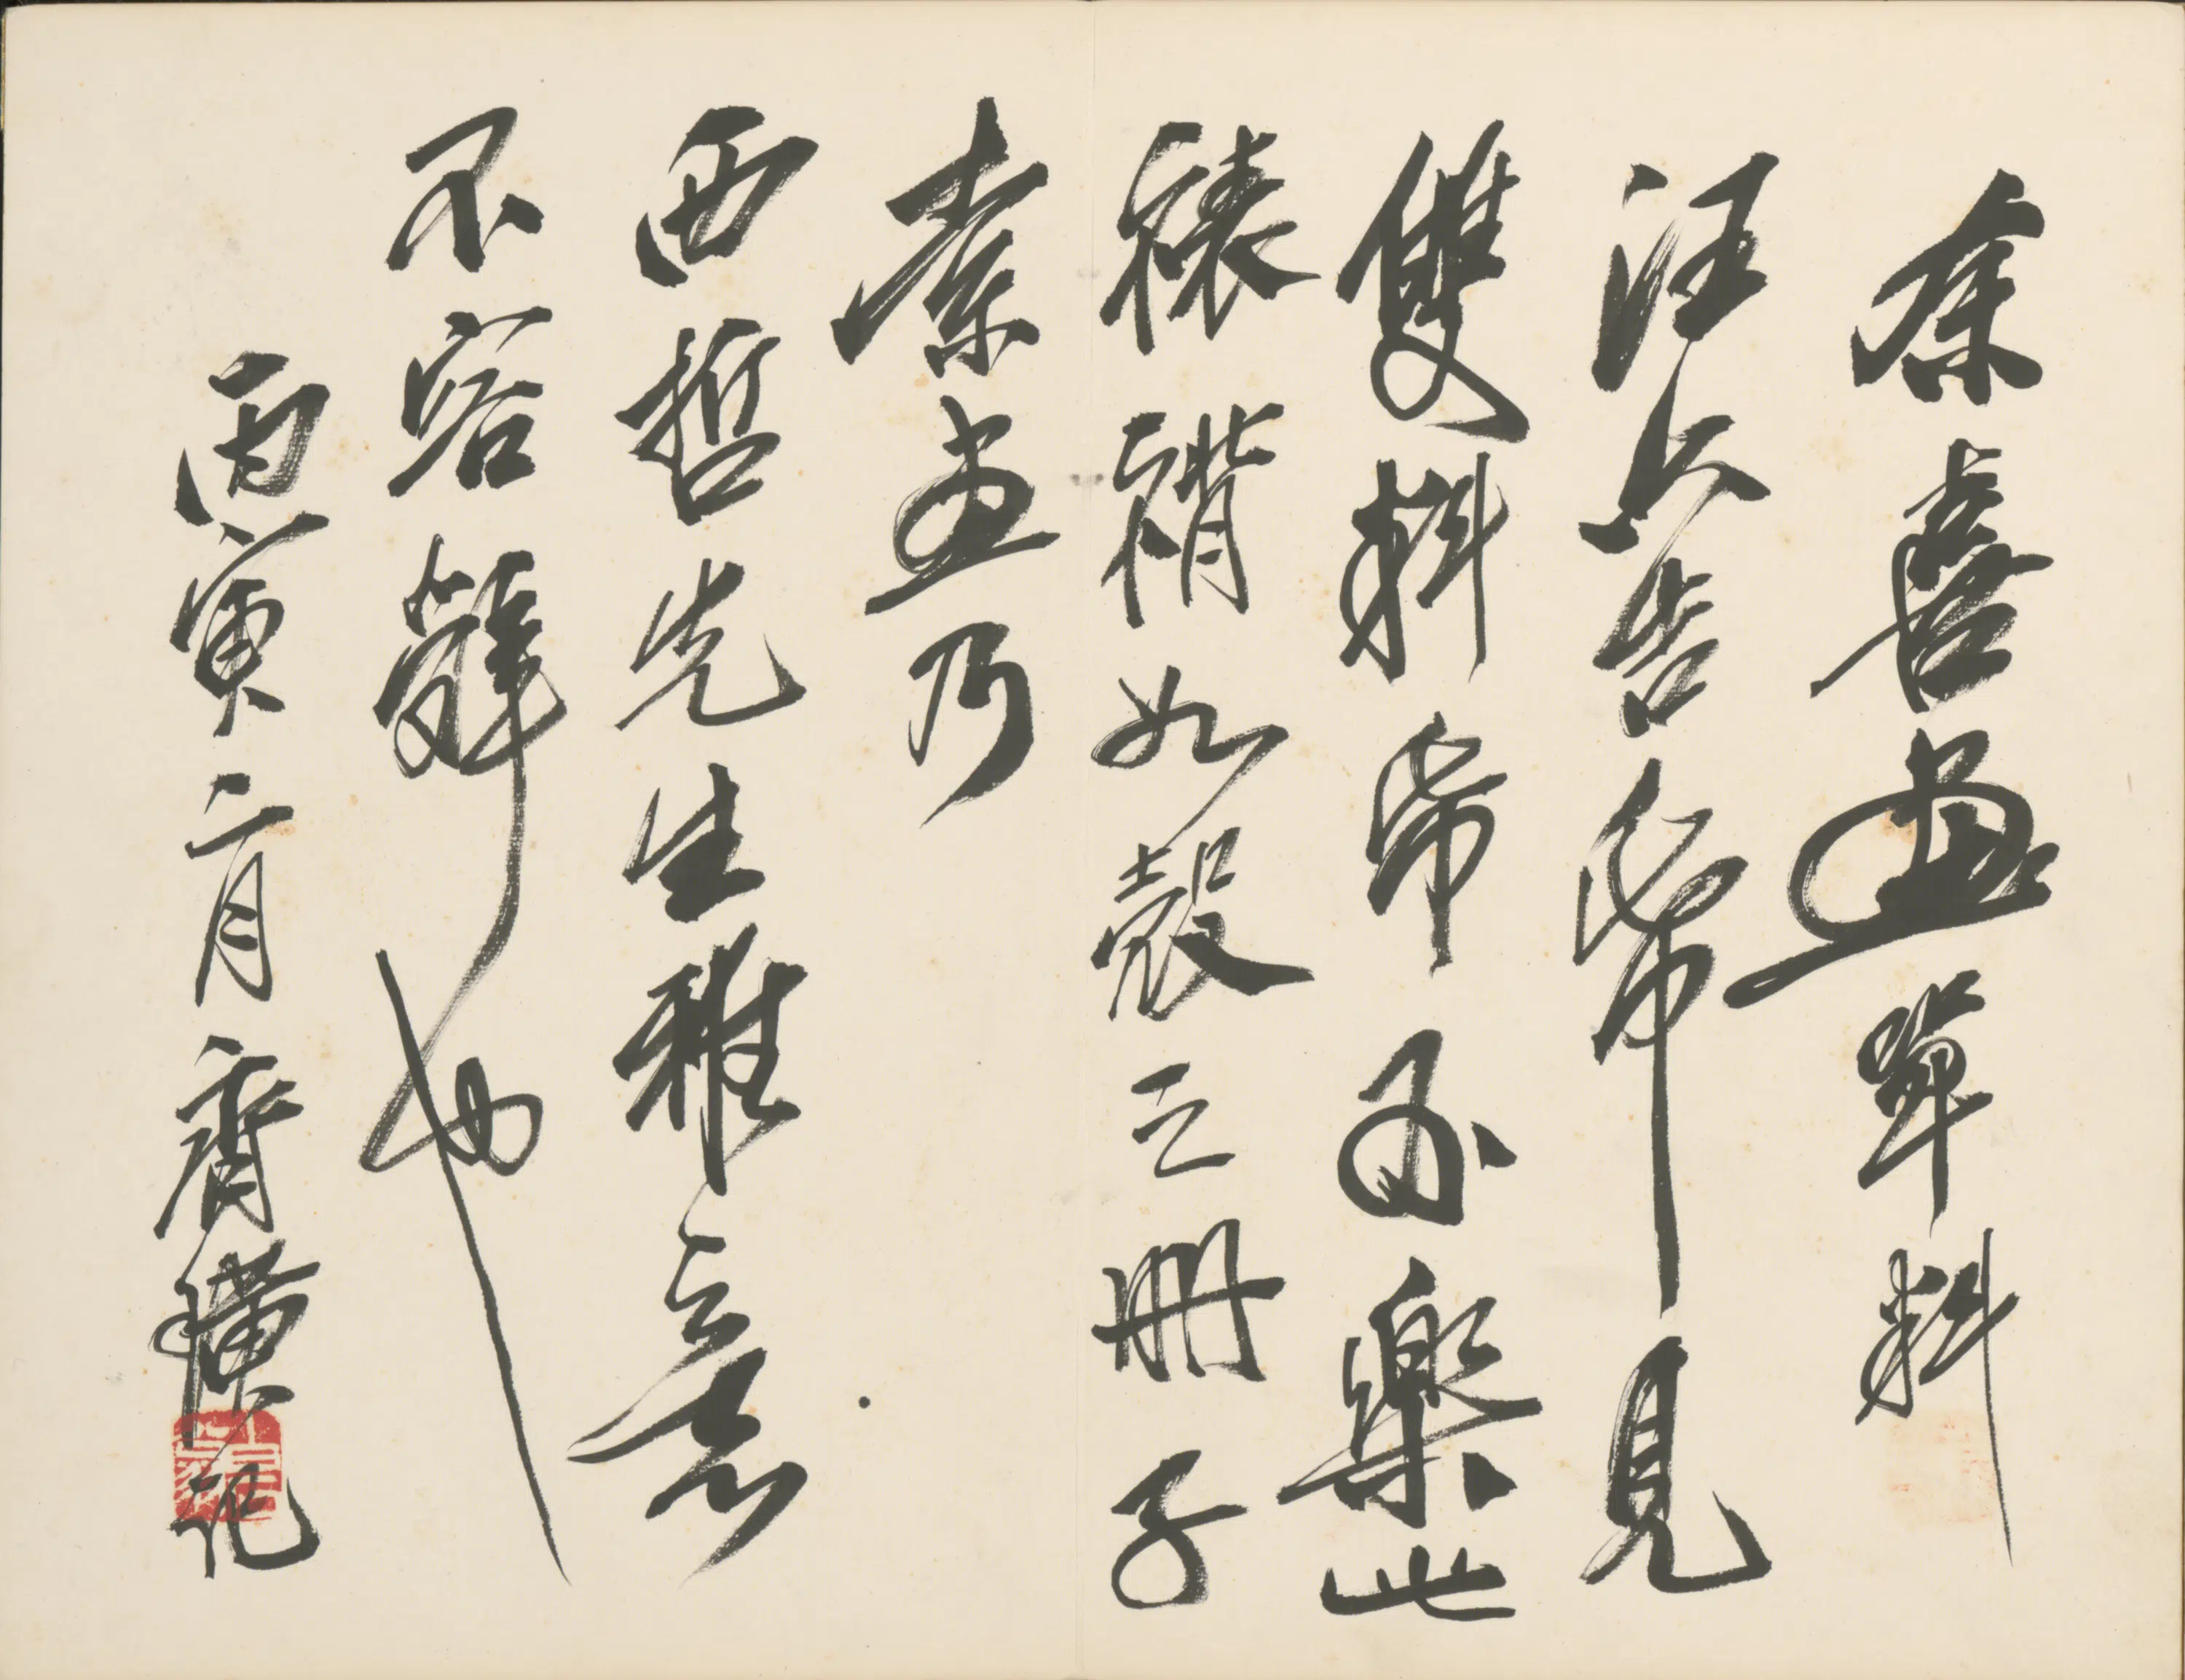 余喜畫單料
汪六吉帋見
雙料帋不樂此
裱褙如殼之冊子
索畫乃
西哲先生雅意
不容辭也
丙寅二月齊璜記